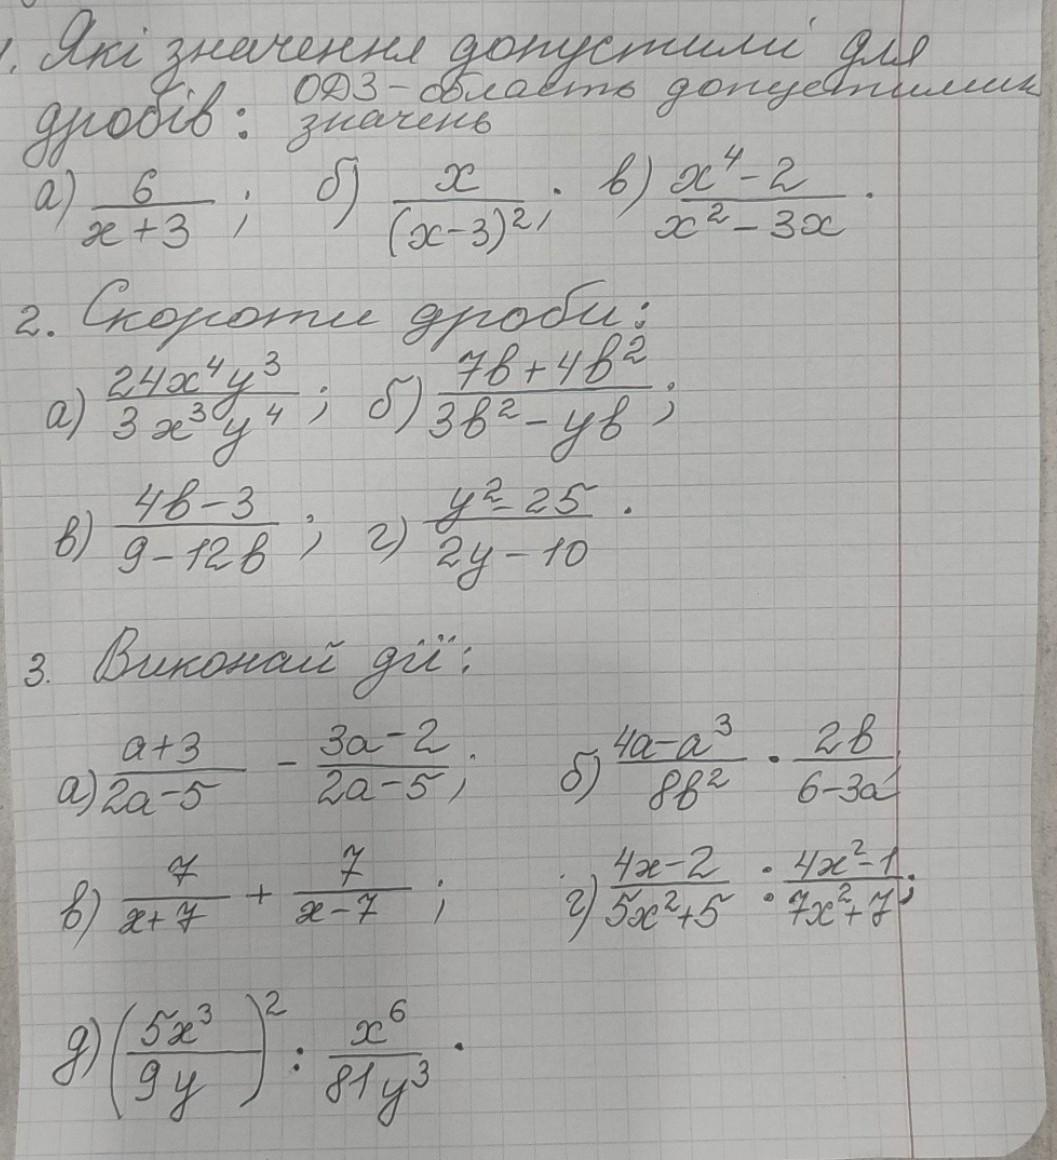 1. Які значення допустимі для
дробів: ОДЗ – область допустимих
значень
а) 6/(x+3); б) x/(x-3)²; в) (x⁴-2)/(x²-3x).
2. Скороти дроби:
а) 24x⁴y³/3x³y⁴; б) (7b+4b²)/(3b²-yb);
в) (4b-3)/(9-12b); г) (y²-25)/(2y-10).
3. Виконай дії:
а) (a+3)/(2a-5) - (3a-2)/(2a-5); б) (4a-a³)/8b² · 2b/(6-3a);
в) 7/(x+7) + 7/(x-7); г) (4x-2)/(5x²+5) : (4x²-1)/(7x²+7);
д) (5x³/9y)² : x⁶/81y³.